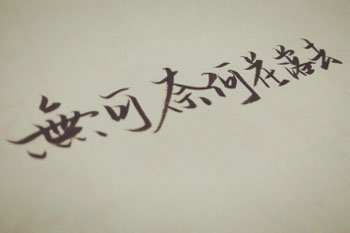 無可奈何花落去